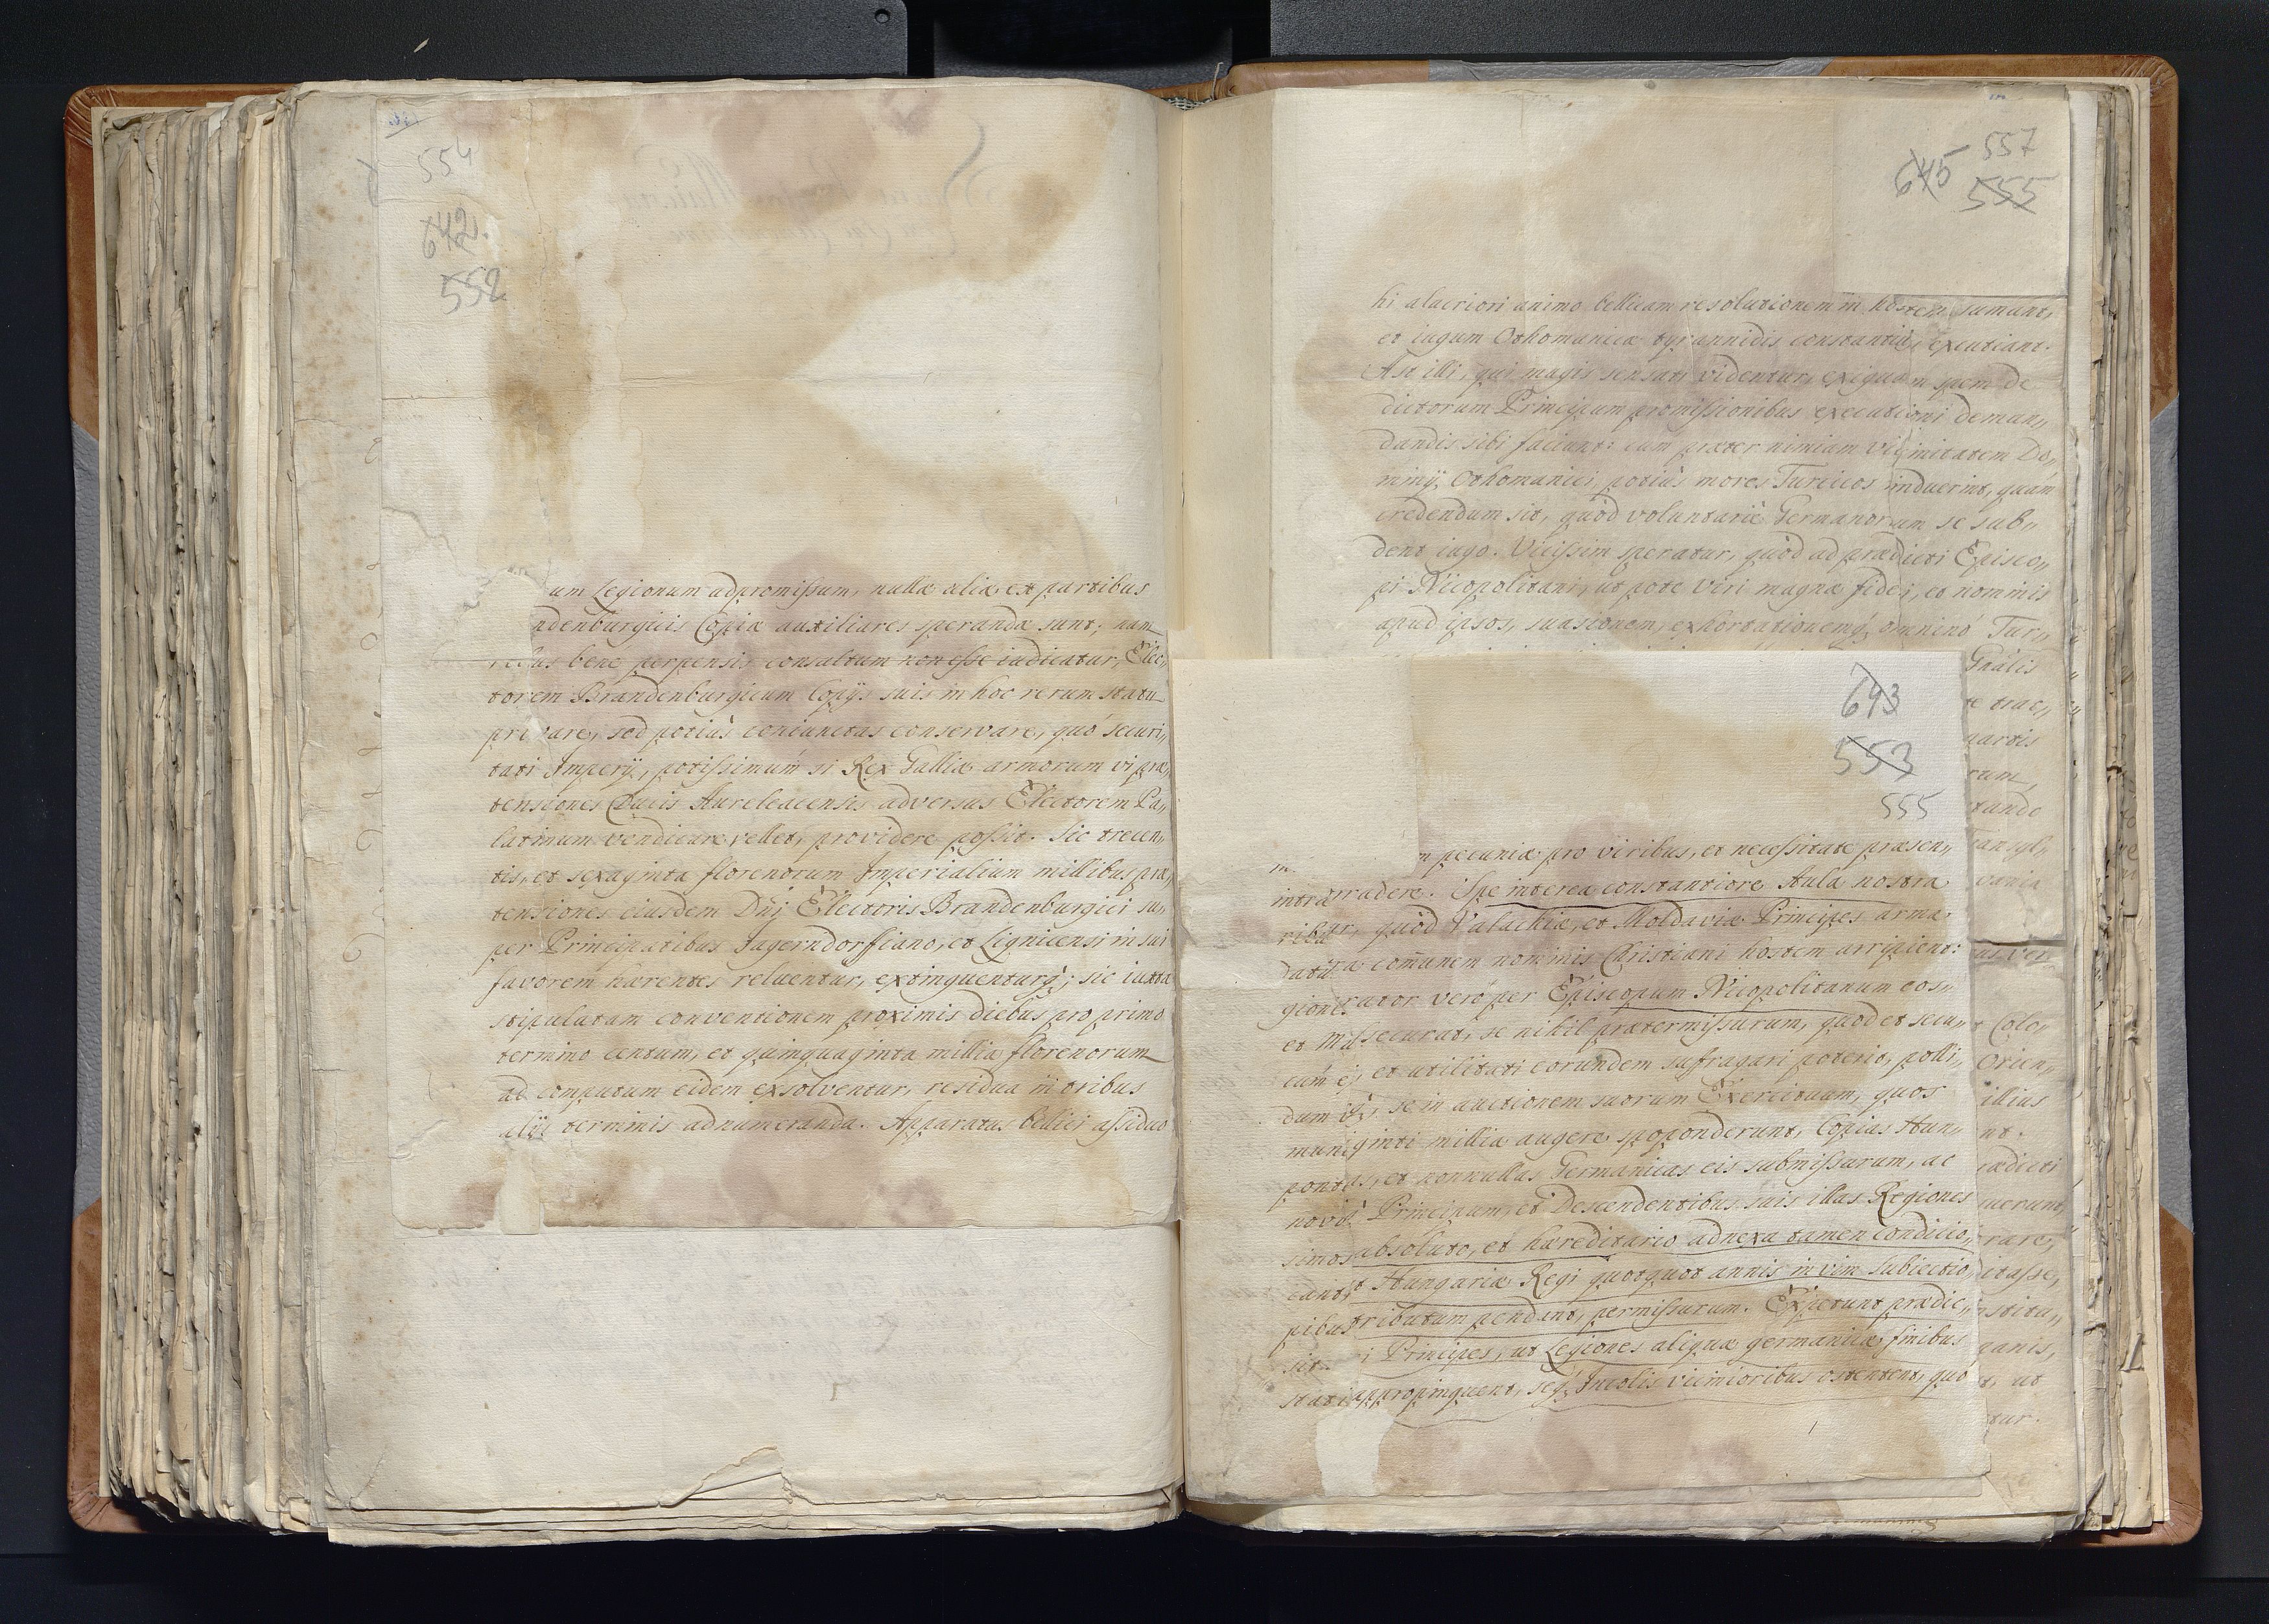 554
642.
552
um Legionum adpromissum, nullæ aliæ ex partibus
ndenburgicis Copiæ auxiliares sperandæ sunt; nam
bus bene perpensis consultum non esse iudicatur, Elec„
torem Brandenburgicum Copÿs suis in hoc rerum statu
privare, sed potiùs coniunctas conservare, quò securi„
tati Imperÿ, potissimùm si Rex Galliæ armorum vi præ„
tensiones Ducis Aureleacensis adversus Electorem Pa„
latinum vendicare vellet, providere possit. Sic trecen„
tis, et sexaginta florenorum Imperialium millibus præ„
tensiones eiusdem Dni Electoris Brandenburgici su„
per Principatibus Jagerndorffiano, et Lignicensi in sui
favorem hærentes reluentur, extinguenturq; sic iuxta
stipulatam conventionem proximis diebus pro primo
termino centum, et quinquaginta millia florenorum
ad computum eidem exsolventur, residua in oribus
alÿs terminis adnumeranda. Apparatus bellici assiduo
557
645
555
hi alacriori animo bellicam resolutionem in hostem sumant,
et iugum Othomanicæ tyrannidis constantiùs excutiant.
Ast illi, qui magis sensati videntur, exiguam spem de
dictorum Principum promissionibus executioni deman„
dandis sibi faciunt: cum præter nimiam vicinitatem Do„
minÿ Othomanici, potiùs mores Turcicos induerint, quam
credendum sit, quòd voluntariè Germanorum se sub„
dent iugo. Vicissim speratur, quòd ad prædicti Episco„
pi Nicopolitani, ut pote Viri magnæ fidei, et nominis
apud ipsos, suasionem, exhortationemq; omninò Tur„
643
553
555
n pecuniæ pro viribus, et necessitate præsen„
rradere. Spe interea constantiore Aula nostra
r, quòd Valachiæ, et Moldaviæ Principes arma
a com̃unem nominis Christiani hostem arripient:
rator verò per Episcopum Nicopolitanum eos„
securat, se nihil prætermissurum, quod et secu„
et utilitati eorundem sufragari poterit, polli„
se in auctionem suorum Exercituum, quos
ginti millia augere spoponderunt, Copias Hun„
as, et nonnullas Germanicas eis submissurum, ac
Principum, et Descendentibus suis illas Regiones
absoluto, et hæreditario adnexa tamen condicio„
t Hungariæ Regi quotquot annis in vim Subiectio„
tributum pendant, permissurum. Expetunt prædic„
i Principes, ut Legiones aliquæ germanicæ finibus
appropinquent, seq; Incolis vicinioribus ostentent, quo